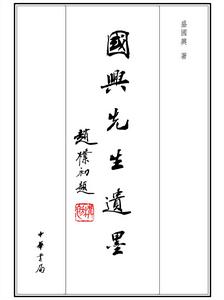 盛國興 著
國興先生遺墨
趙樸初題
中華書局